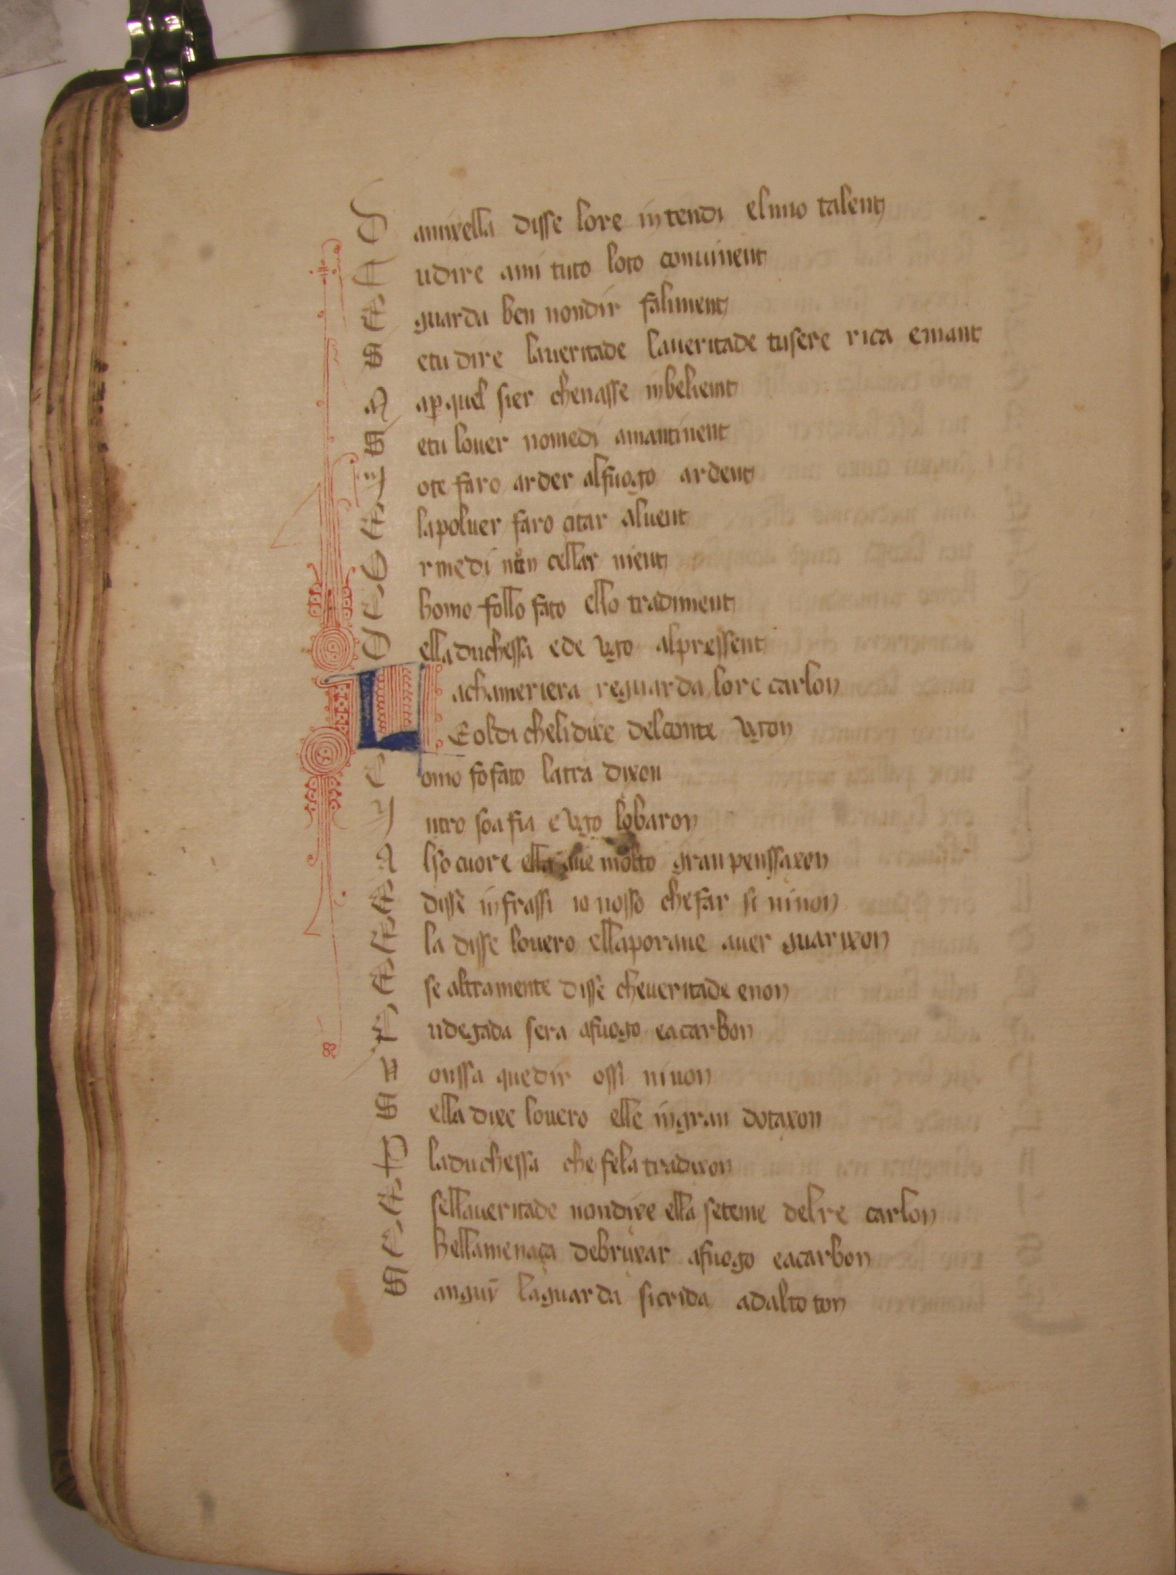 D amixella disse lore intendi elmio talent
E udire ami tuto loto convinent
E guarda ben nondir faliment
S etu dire laveritade laveritade tusere rica emant
A ap quel sier chenasse inbelient
S etu lover nomedi amantinent
Y ote faro arder alfuogo ardent
E lapolver faro citar alvent
O rmedi non cellar nient
C homo follo fato ello tradiment
D elladuchessa ede vgo alpressent
L achameriera reguarda lore carlon
E oldi chelidixe delconte vgon
C omo fofato latra dixon
Y ntro soa fia e vgo lobaron
A lso cuore ella ave molto gran penssaxon
E disse infrassi io nosso chefar si ninon
E la disse lovero ellaporave aver guarixon
E se altramente disse cheveritade enon
C udegada sera afuogo eacarbon
N onssa quedir ossi ninon
S ella dixe lovero elle ingran dotaxon
P laduchessa che fela tradixon
E sellaveritade nondixe ella seteme delre carlon
C hellamenaça debruxar afuogo eacarbon
S anguī laguarda sicrida adalto ton